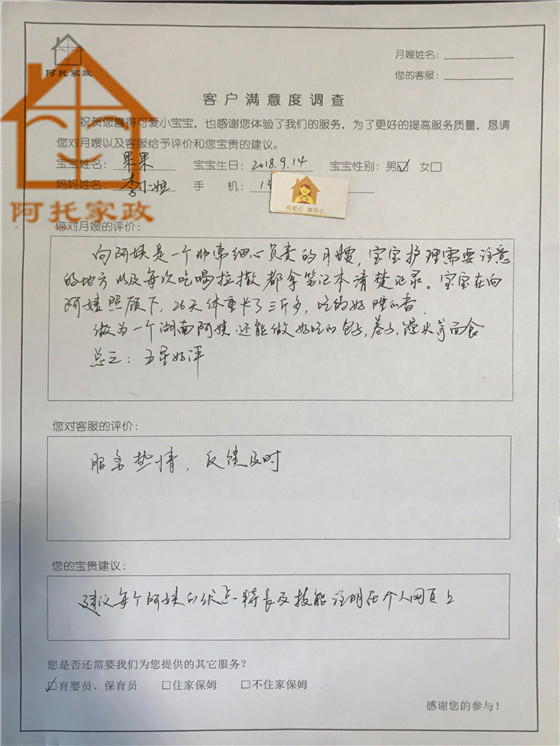 阿托家政
月嫂姓名:
您的客服:
客户满意度调查
祝贺您喜得可爱小宝宝,也感谢您体验了我们的服务,为了更好的提高服务质量,恳请
您对月嫂以及客服给予评价和您宝贵的建议。
宝宝姓名: 果果 宝宝生日: 2018.9.14 宝宝性别: 男☑ 女□
妈妈姓名: 李小姐 手 机: 1
有爱心 更贴心
阿托家政
您对月嫂的评价:
向阿姨是一个非常细心负责的月嫂,宝宝护理需要注意
的地方以及每次吃喝拉撒都拿笔记本清楚记录。宝宝在向
阿姨照顾下,26天体重长了三斤多,吃的好睡的香.
做为一个湖南阿姨还能做好吃的包子,卷子,馒头等面食
总之:五星好评
您对客服的评价:
服务热情,反馈及时
您的宝贵建议:
建议每个阿姨的优点特长及技能注明在个人网页上
您是否还需要我们为您提供的其它服务?
☑育婴员、保育员 □住家保姆 □不住家保姆
感谢您的参与!